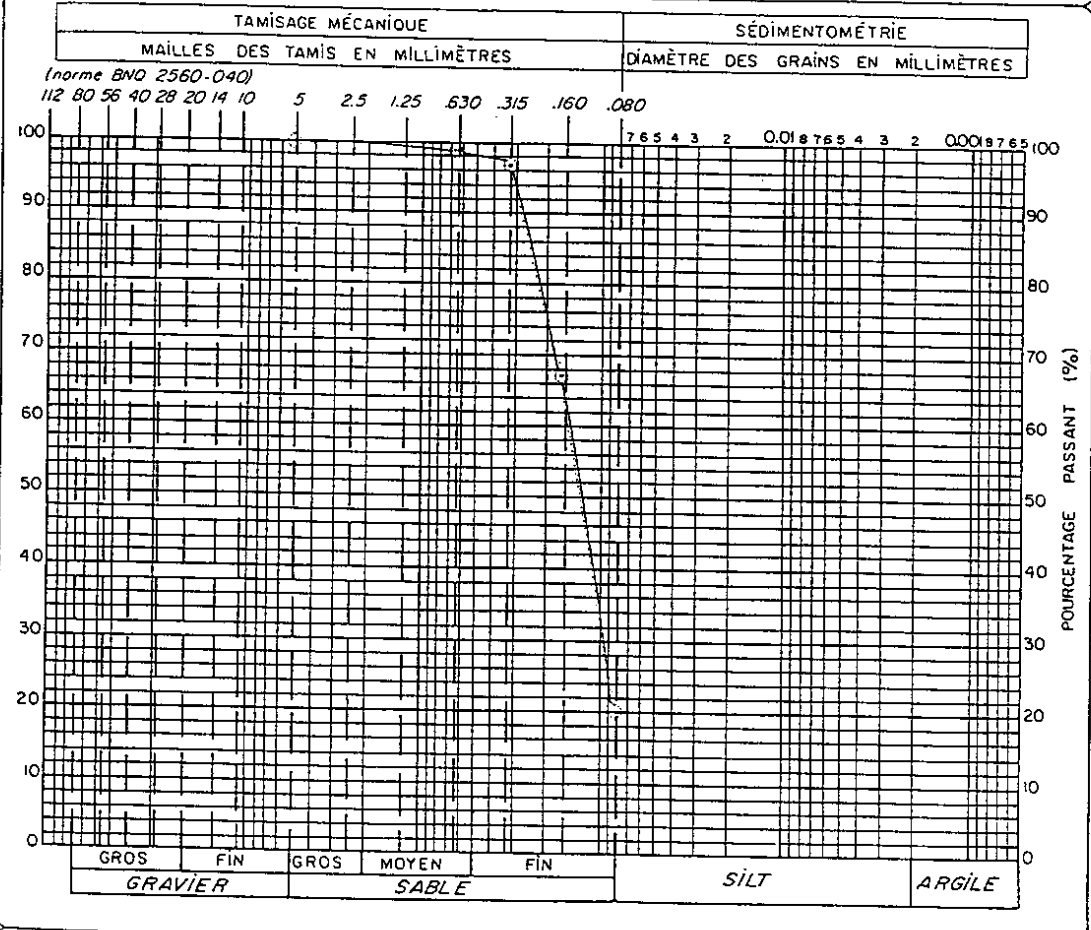 TAMISAGE MÉCANIQUE
SÉDIMENTOMÉTRIE
MAILLES DES TAMIS EN MILLIMÈTRES
DIAMÈTRE DES GRAINS EN MILLIMÈTRES
(norme BNQ 2560-040)
112 80 56 40 28 20 14 10 5 2.5 1.25 .630 .315 .160 .080
7 6 5 4 3 2 0.01 8 7 6 5 4 3 2 0.001 9 8 7 6 5
100 100
90 90
80 80
70 70
60 60
50 50
40 40
30 30
20 20
10 10
0 0
POURCENTAGE PASSANT (%)
GROS FIN GROS MOYEN FIN
GRAVIER SABLE SILT ARGILE